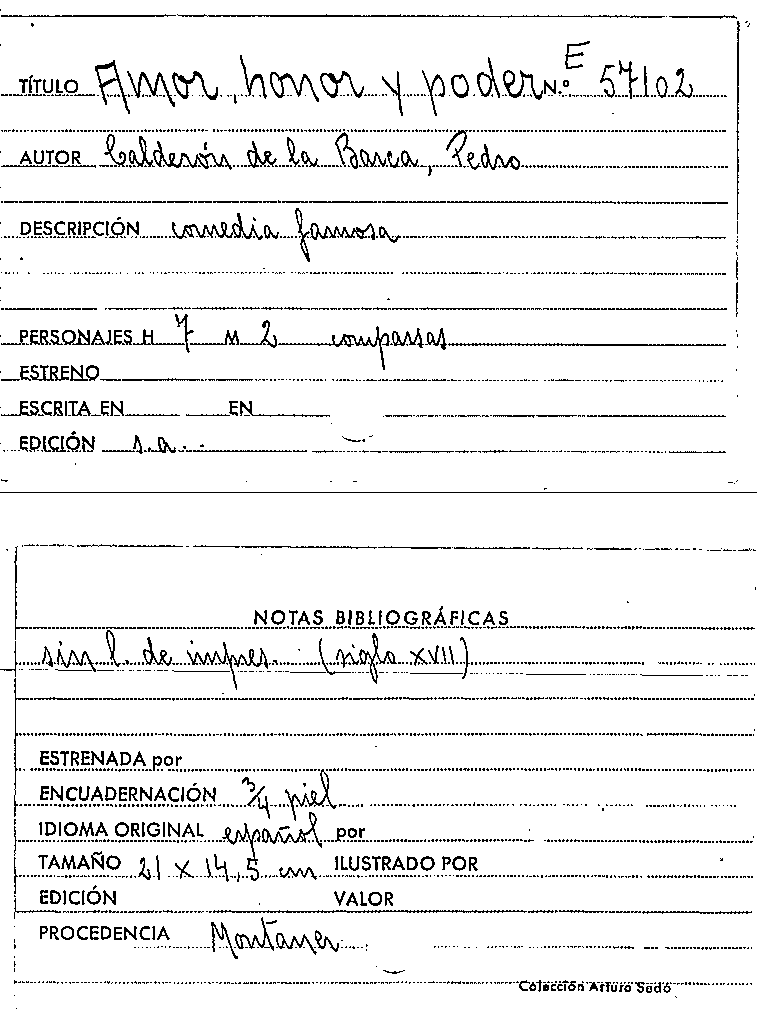 TÍTULO Amor, honor y poder N.º E 57102
AUTOR Calderón de la Barca, Pedro
DESCRIPCIÓN comedia famosa
PERSONAJES H 7 M 2 comparsas
ESTRENO
ESCRITA EN EN
EDICIÓN s.a.
NOTAS BIBLIOGRÁFICAS
sin l. de impres. (siglo XVII)
ESTRENADA por
ENCUADERNACIÓN 3/4 piel
IDIOMA ORIGINAL español por
TAMAÑO 21 x 14,5 cm ILUSTRADO POR
EDICIÓN VALOR
PROCEDENCIA Montaner
Colección Arturo Sedó